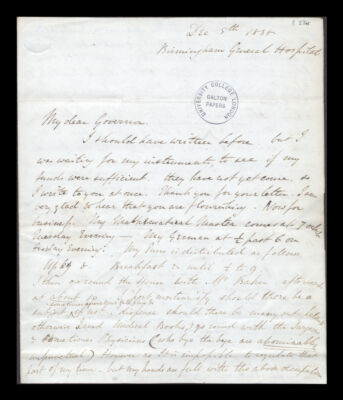 Dec 5th 1838
Birmingham General Hospital
UNIVERSITY COLLEGE LONDON
GALTON
PAPERS
My dear Governor.
I should have written before but I
was waiting for my instruments, to see if my
funds were sufficient. they have not yet come, so
I write to you at once. Thank you for your letter. I am
very glad to hear that you are flourishing. Now for
business. My Mathematical Master comes at 7 o'clock
Tuesday Evening — My German at ½ past 6 on
Evening. My time is distributed as follows
Up &
Breakfast & until ¼ to 9.
I then go round the House with Mr Baker afterwards
at about
post mortem if there should be a
subject if not dispense should there be many out patients
otherwise read Medical Books, go round with the Surgeon
& sometimes Physicians (who bye the bye are abominably
unpunctual) However as it is impossible to regulate that
part of my time. but my hands are full with the above occupation